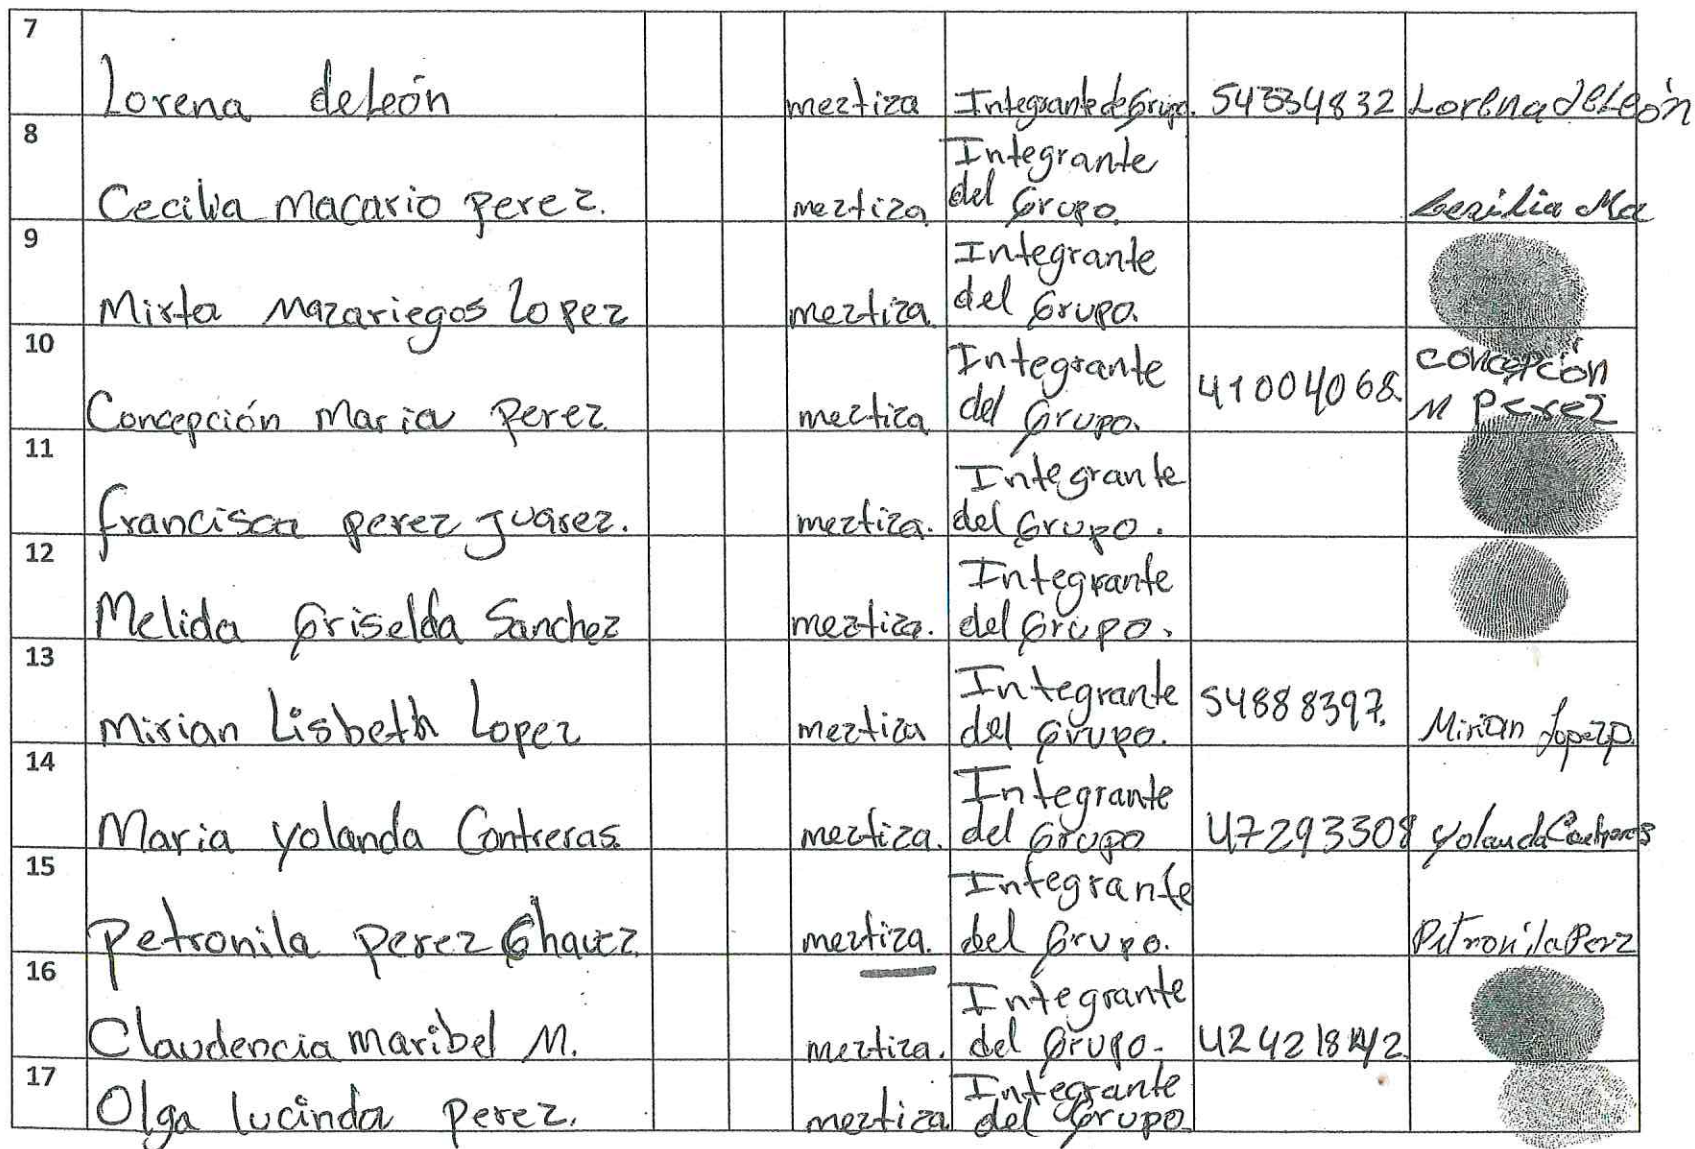 7
Lorena deLeón meztiza Integrante de Grupo. 54334832 Lorena deLeón
8
Cecilia Macario Perez. meztiza Integrante
del Grupo. Cecilia Ma
9
Mirta Mazariegos Lopez meztiza. Integrante
del Grupo.
10
Concepción Maria Perez meztiza Integrante
del Grupo. 41004068. concepción
M Perez
11
francisca perez Juarez. meztiza. Integrante
del Grupo.
12
Melida Griselda Sanchez meztiza. Integrante
del Grupo.
13
Mirian Lisbeth Lopez meztiza Integrante
del Grupo. 54888397. Mirian Lopezp.
14
Maria Yolanda Contreras. meztiza. Integrante
del Grupo 47293308 Yolanda Contreras
15
Petronila Perez Chavez meztiza. Integrante
del Grupo. Petronila Perz
16
Claudencia maribel M. meztiza. Integrante
del Grupo. 42421842
17
Olga lucinda perez. meztiza Integrante
del Grupo